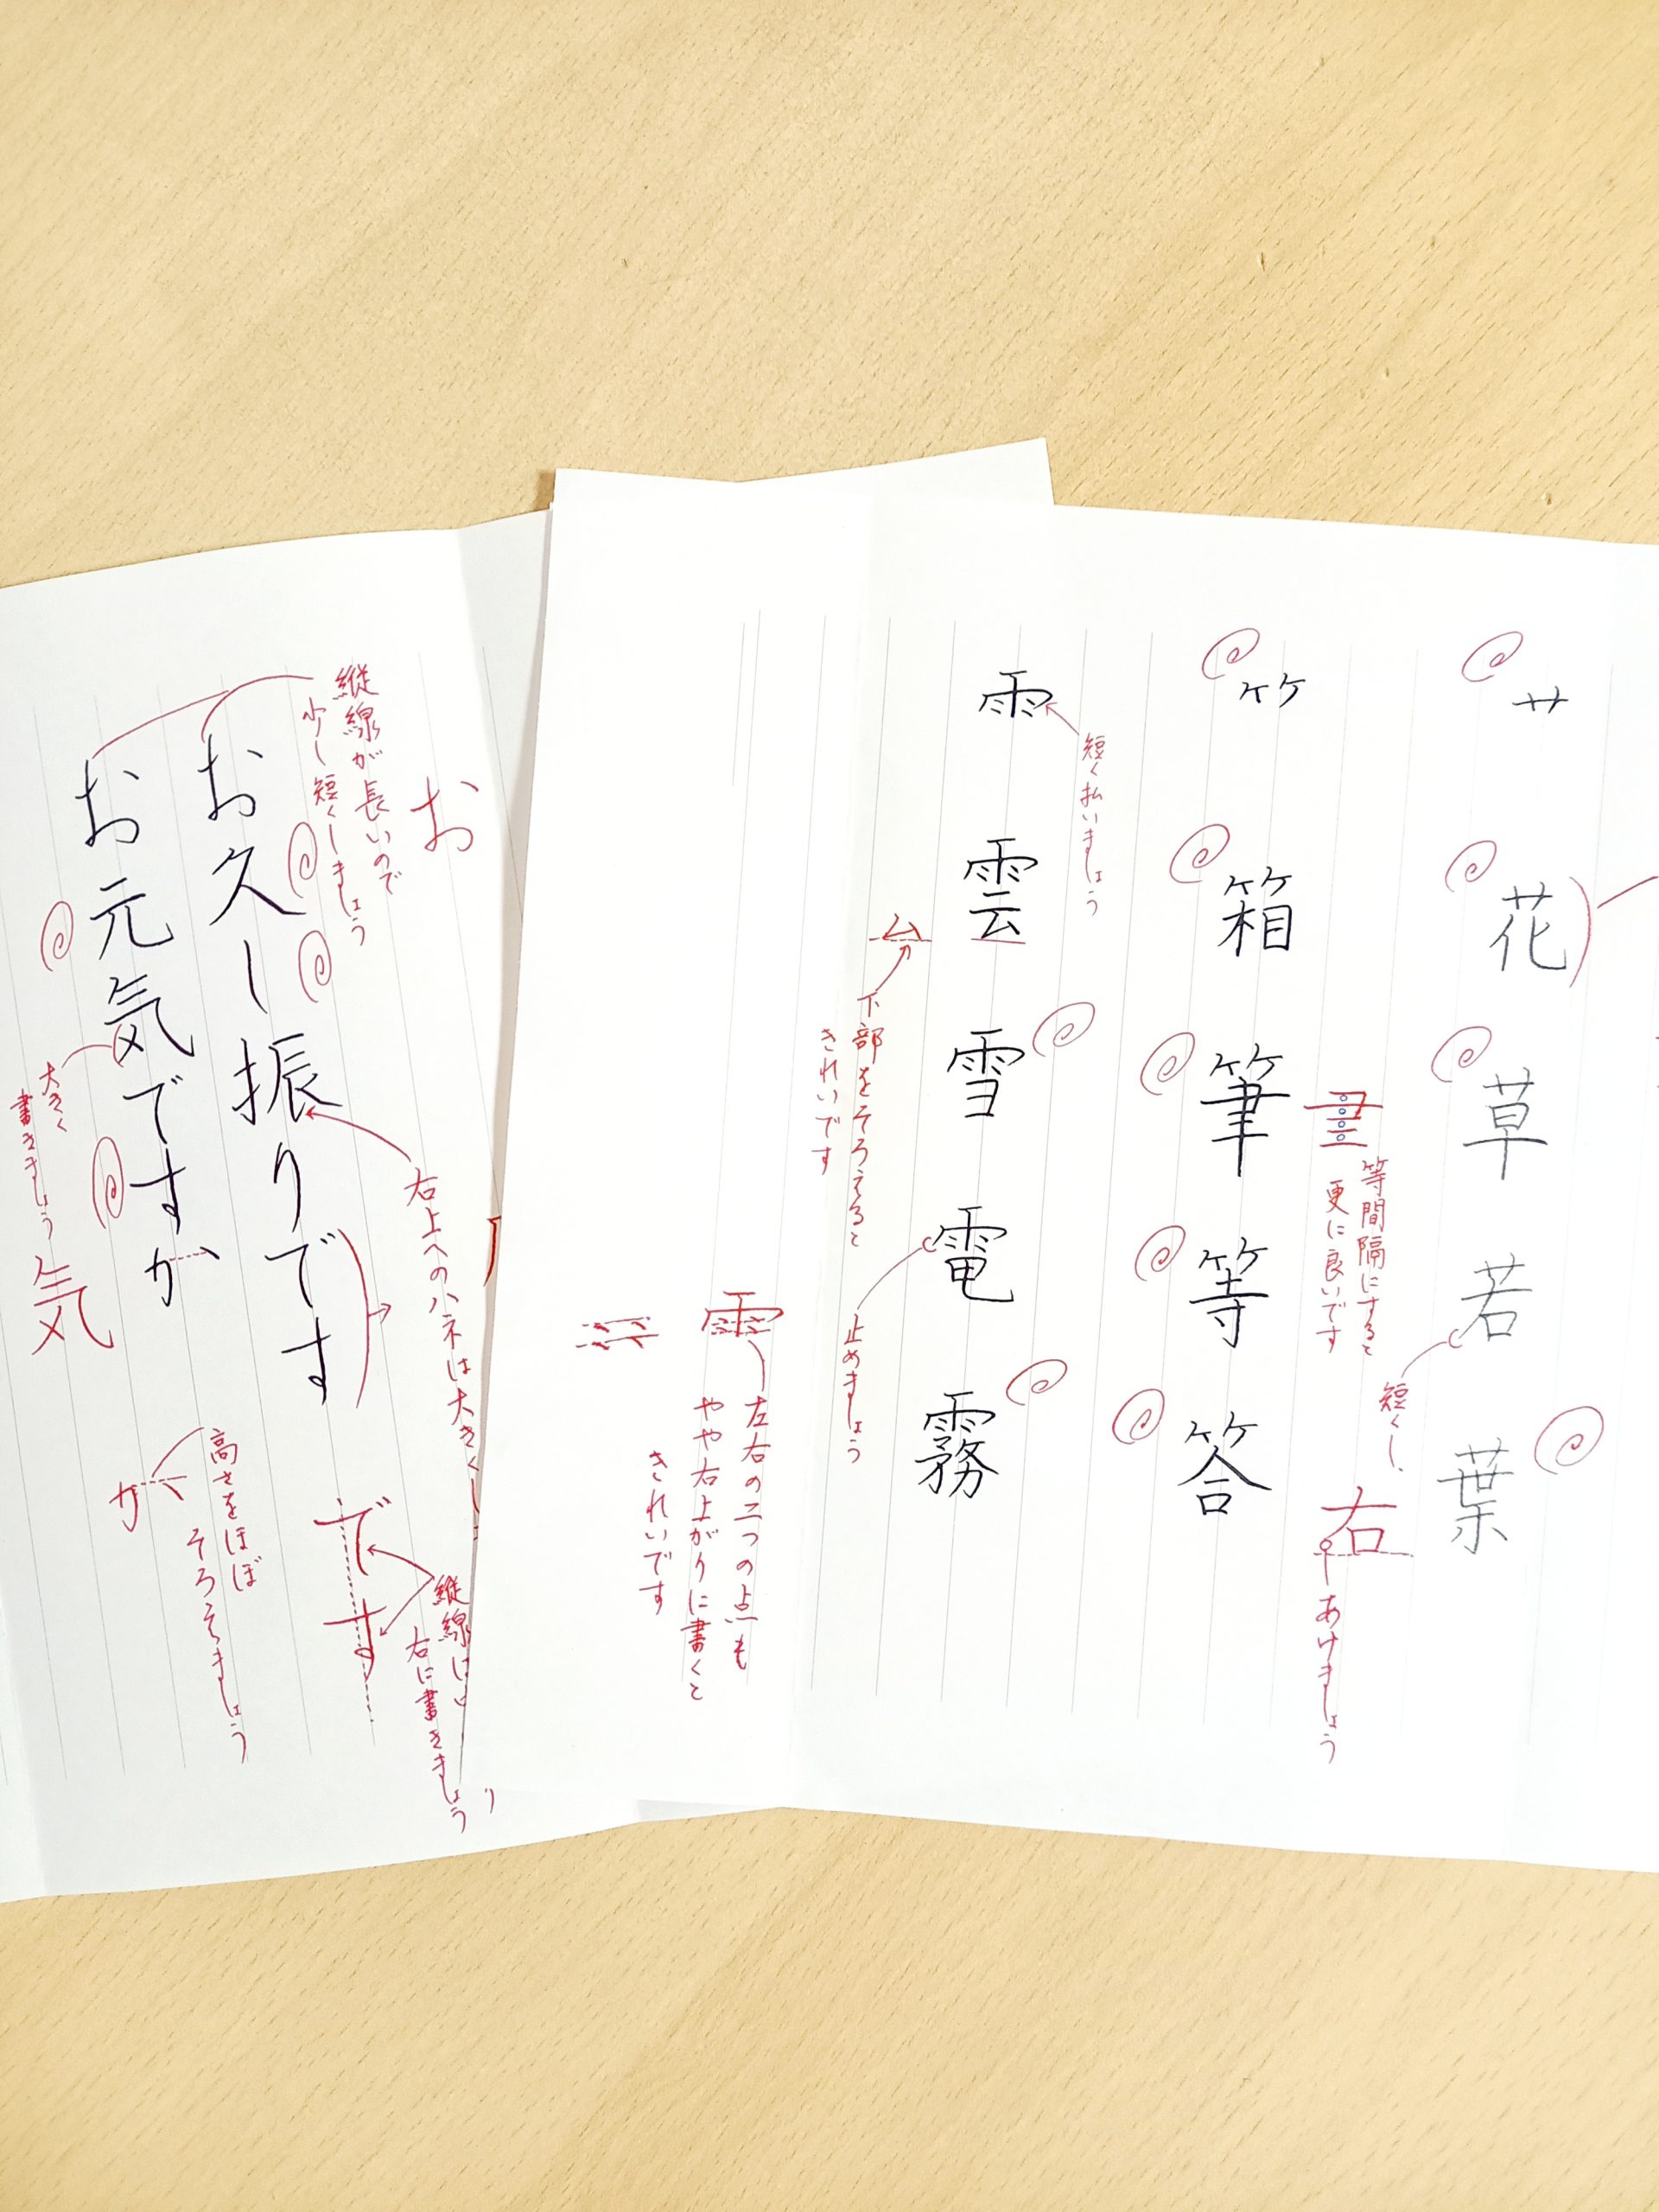 艹
花
草
若
葉
短くし、
右
あけましょう
⺮
箱
筆
等
答
等間隔にすると
更に良いです
雨
雲
雪
電
霧
短く払いましょう
下部をそろえると
きれいです
止めましょう
雨
左右の二つの点も
やや右上がりに書くと
きれいです
お
縦線が長いので
少し短くしましょう
お久し振りです
お元気ですか
右上へのハネは大きくし
です
縦線は
右に書きましょう
大きく
書きましょう
気
高さをほぼ
そろえましょう
か